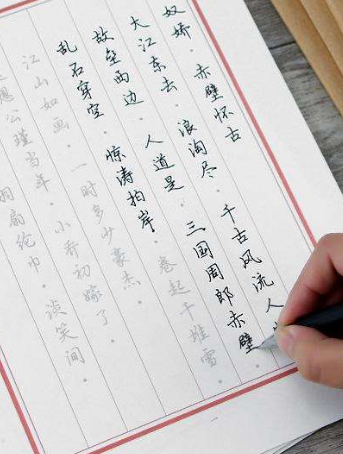 奴娇 赤壁怀古
大江东去。浪淘尽。千古风流人
故垒西边。人道是。三国周郎赤壁
乱石穿空。惊涛拍岸。卷起千堆雪。
江山如画。一时多少豪杰。
想公瑾当年。小乔初嫁了。
羽扇纶巾。谈笑间。